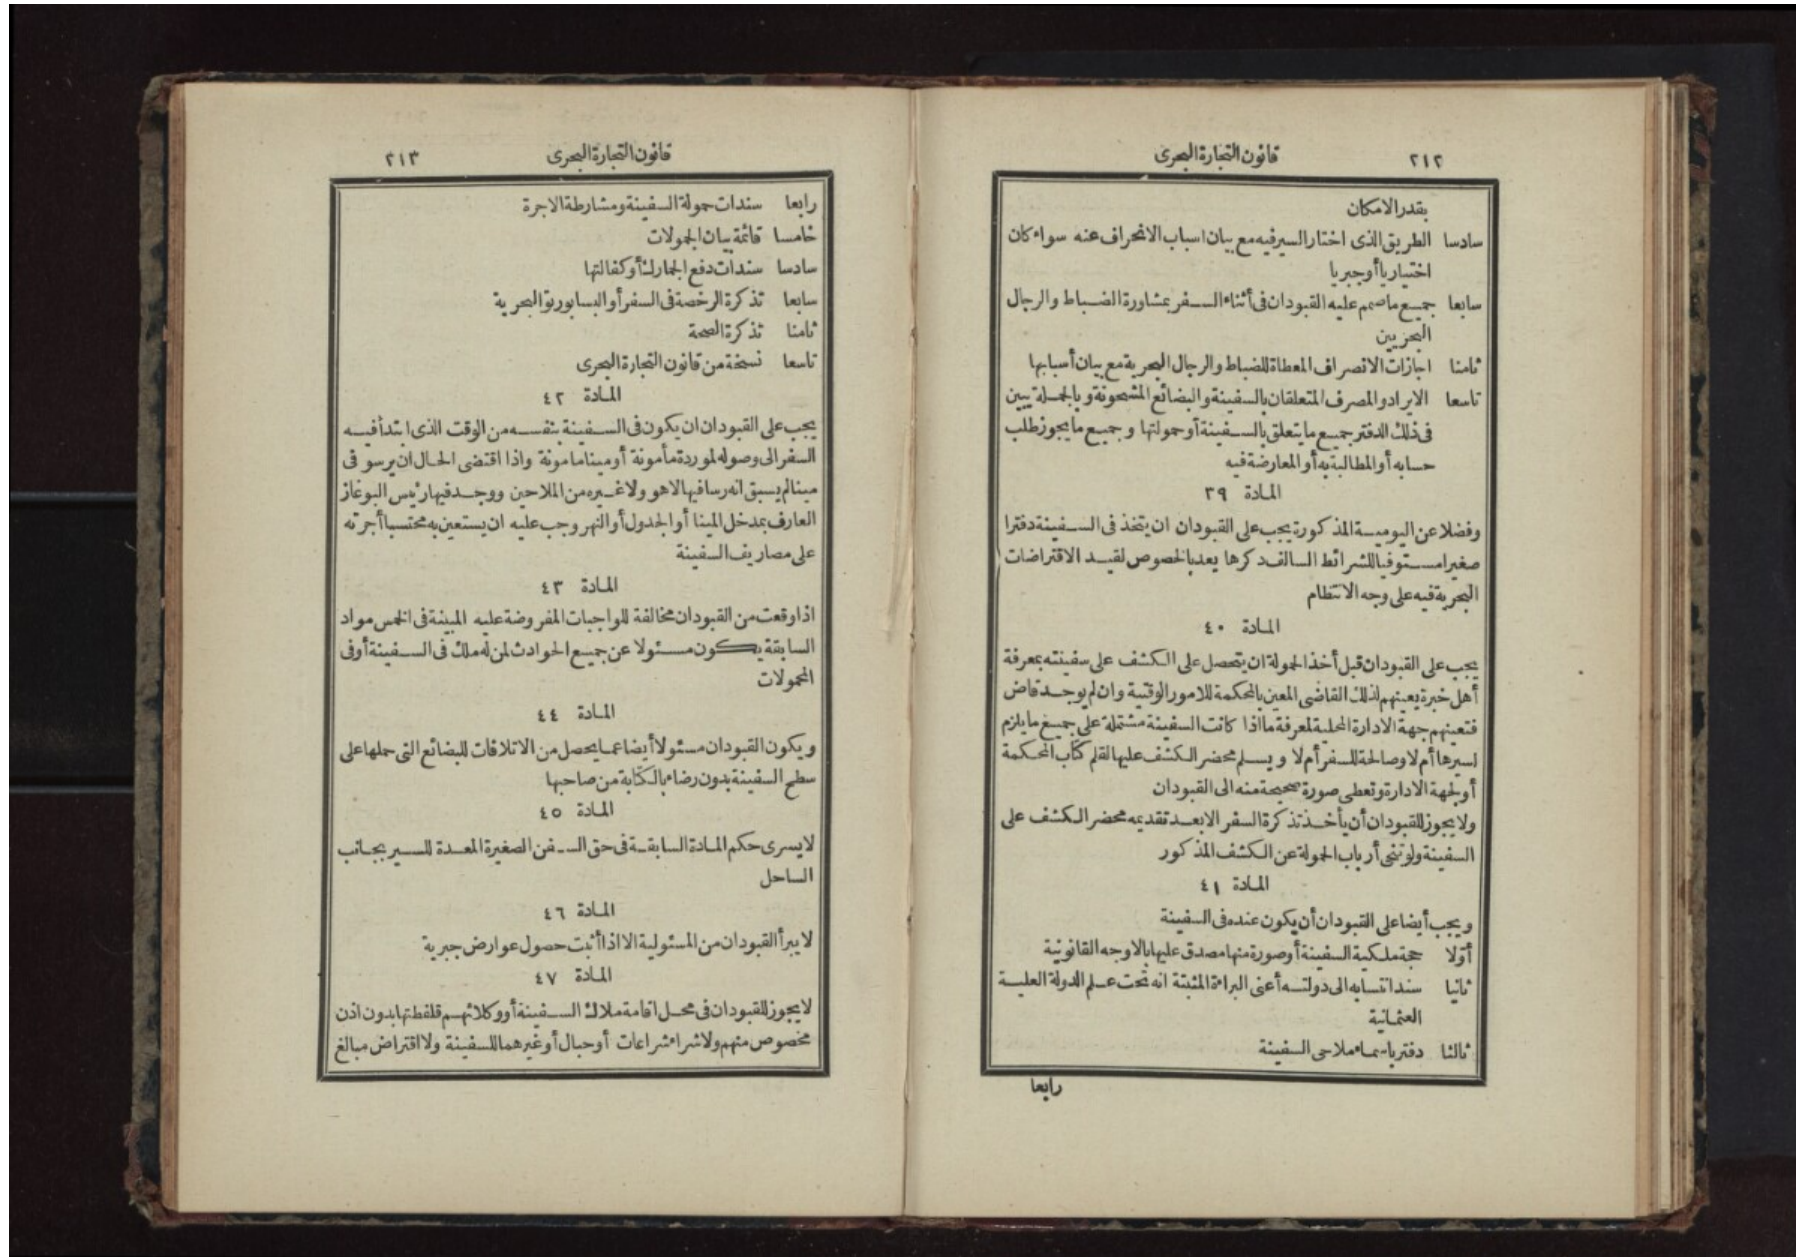 ٢١٢
قانون التجارة البحرى
بقدر الامكان
سادسا الطريق الذى اختار السير فيه مع بيان اسباب الانحراف عنه سواء كان
اختياريا أو جبريا
سابعا جميع ما صمم عليه القبودان فى أثناء السفر بمشاورة الضباط والرجال
البحريين
ثامنا اجازات الانصراف المعطاة للضباط والرجال البحرية مع بيان أسبابها
تاسعا الايراد والمصرف المتعلقان بالسفينة والبضائع المشحونة وبالجملة يبين
فى ذلك الدفتر جميع ما يتعلق بالسفينة أو حمولتها وجميع ما يجوز طلب
حسابه أو المطالبة به أو المعارضة فيه
المادة ٣٩
وفضلا عن اليومية المذكورة يجب على القبودان ان يتخذ فى السفينة دفترا
صغيرا مستوفيا للشرائط السالف ذكرها يعد بالخصوص لقيد الاقتراضات
البحرية فيه على وجه الانتظام
المادة ٤٠
يجب على القبودان قبل أخذ الحمولة ان يتحصل على الكشف على سفينته بمعرفة
أهل خبرة يعينهم لذلك القاضى المعين بالمحكمة للامور الوقتية وان لم يوجد قاض
فتعينهم جهة الادارة المحلية لمعرفة ما اذا كانت السفينة مشتملة على جميع ما يلزم
لسيرها أم لا وصالحة للسفر أم لا ويسلم محضر الكشف عليها لقلم كتاب المحكمة
أو لجهة الادارة وتعطى صورة صحيحة منه الى القبودان
ولا يجوز للقبودان أن يأخذ تذكرة السفر الا بعد تقديمه محضر الكشف على
السفينة ولو تنحى أرباب الحمولة عن الكشف المذكور
المادة ٤١
ويجب أيضا على القبودان أن يكون عنده فى السفينة
أوّلا حجة ملكية السفينة أو صورة منها مصدق عليها بالاوجه القانونية
ثانيا سند انتسابه الى دولته أعنى البراءة المثبتة انه تحت علم الدولة العلية
العثمانية
ثالثا دفتر باسماء ملاحى السفينة
رابعا
قانون التجارة البحرى
٢١٣
رابعا سندات حمولة السفينة ومشارطة الاجرة
خامسا قائمة بيان الحمولات
سادسا سندات دفع الجمارك أو كفالتها
سابعا تذكرة الرخصة فى السفر أو البسابورتو البحرية
ثامنا تذكرة الصحة
تاسعا نسخة من قانون التجارة البحرى
المادة ٤٢
يجب على القبودان ان يكون فى السفينة بنفسه من الوقت الذى ابتدأ فيه
السفر الى وصوله لموردة مأمونة أو مينا مأمونة واذا اقتضى الحال ان يرسو فى
مينا لم يسبق انه رسا فيها لا هو ولا غيره من الملاحين ووجد فيها رئيس البوغاز
العارف بمدخل المينا أو الجدول أو النهر وجب عليه ان يستعين به محتسبا أجرته
على مصاريف السفينة
المادة ٤٣
اذا وقعت من القبودان مخالفة للواجبات المفروضة عليه المبينة فى الخمس مواد
السابقة يكون مسئولا عن جميع الحوادث لمن له ملك فى السفينة أو فى
المحمولات
المادة ٤٤
ويكون القبودان مسئولا أيضا عما يحصل من الاتلافات للبضائع التى حملها على
سطح السفينة بدون رضاء بالكتابة من صاحبها
المادة ٤٥
لا يسرى حكم المادة السابقة فى حق السفن الصغيرة المعدة للسير بجانب
الساحل
المادة ٤٦
لا يبرأ القبودان من المسئولية الا اذا أثبت حصول عوارض جبرية
المادة ٤٧
لا يجوز للقبودان فى محل اقامة ملاك السفينة أو وكلائهم قلفطتها بدون اذن
مخصوص منهم ولا شراء شراعات أو حبال أو غيرهما للسفينة ولا اقتراض مبالغ